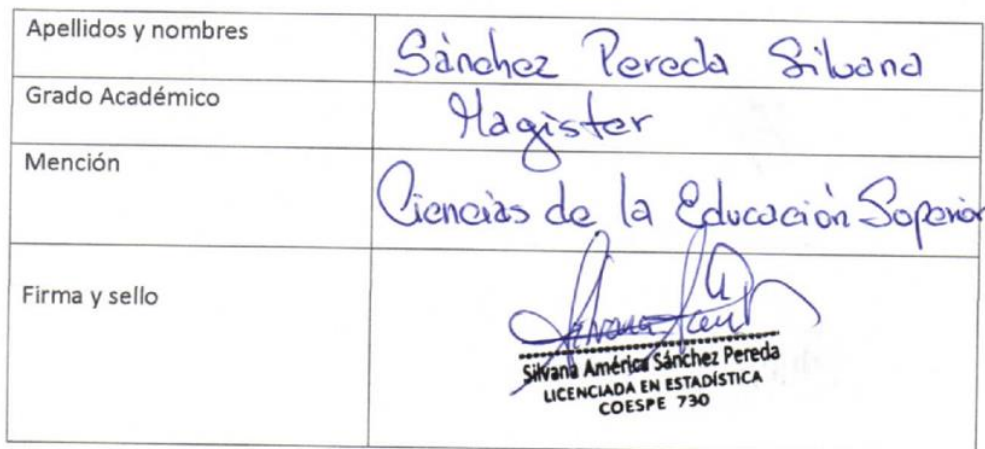 Apellidos y nombres Sánchez Pereda Silvana
Grado Académico Magister
Mención Ciencias de la Educación Superior
Firma y sello
Silvana América Sánchez Pereda
LICENCIADA EN ESTADÍSTICA
COESPE 730